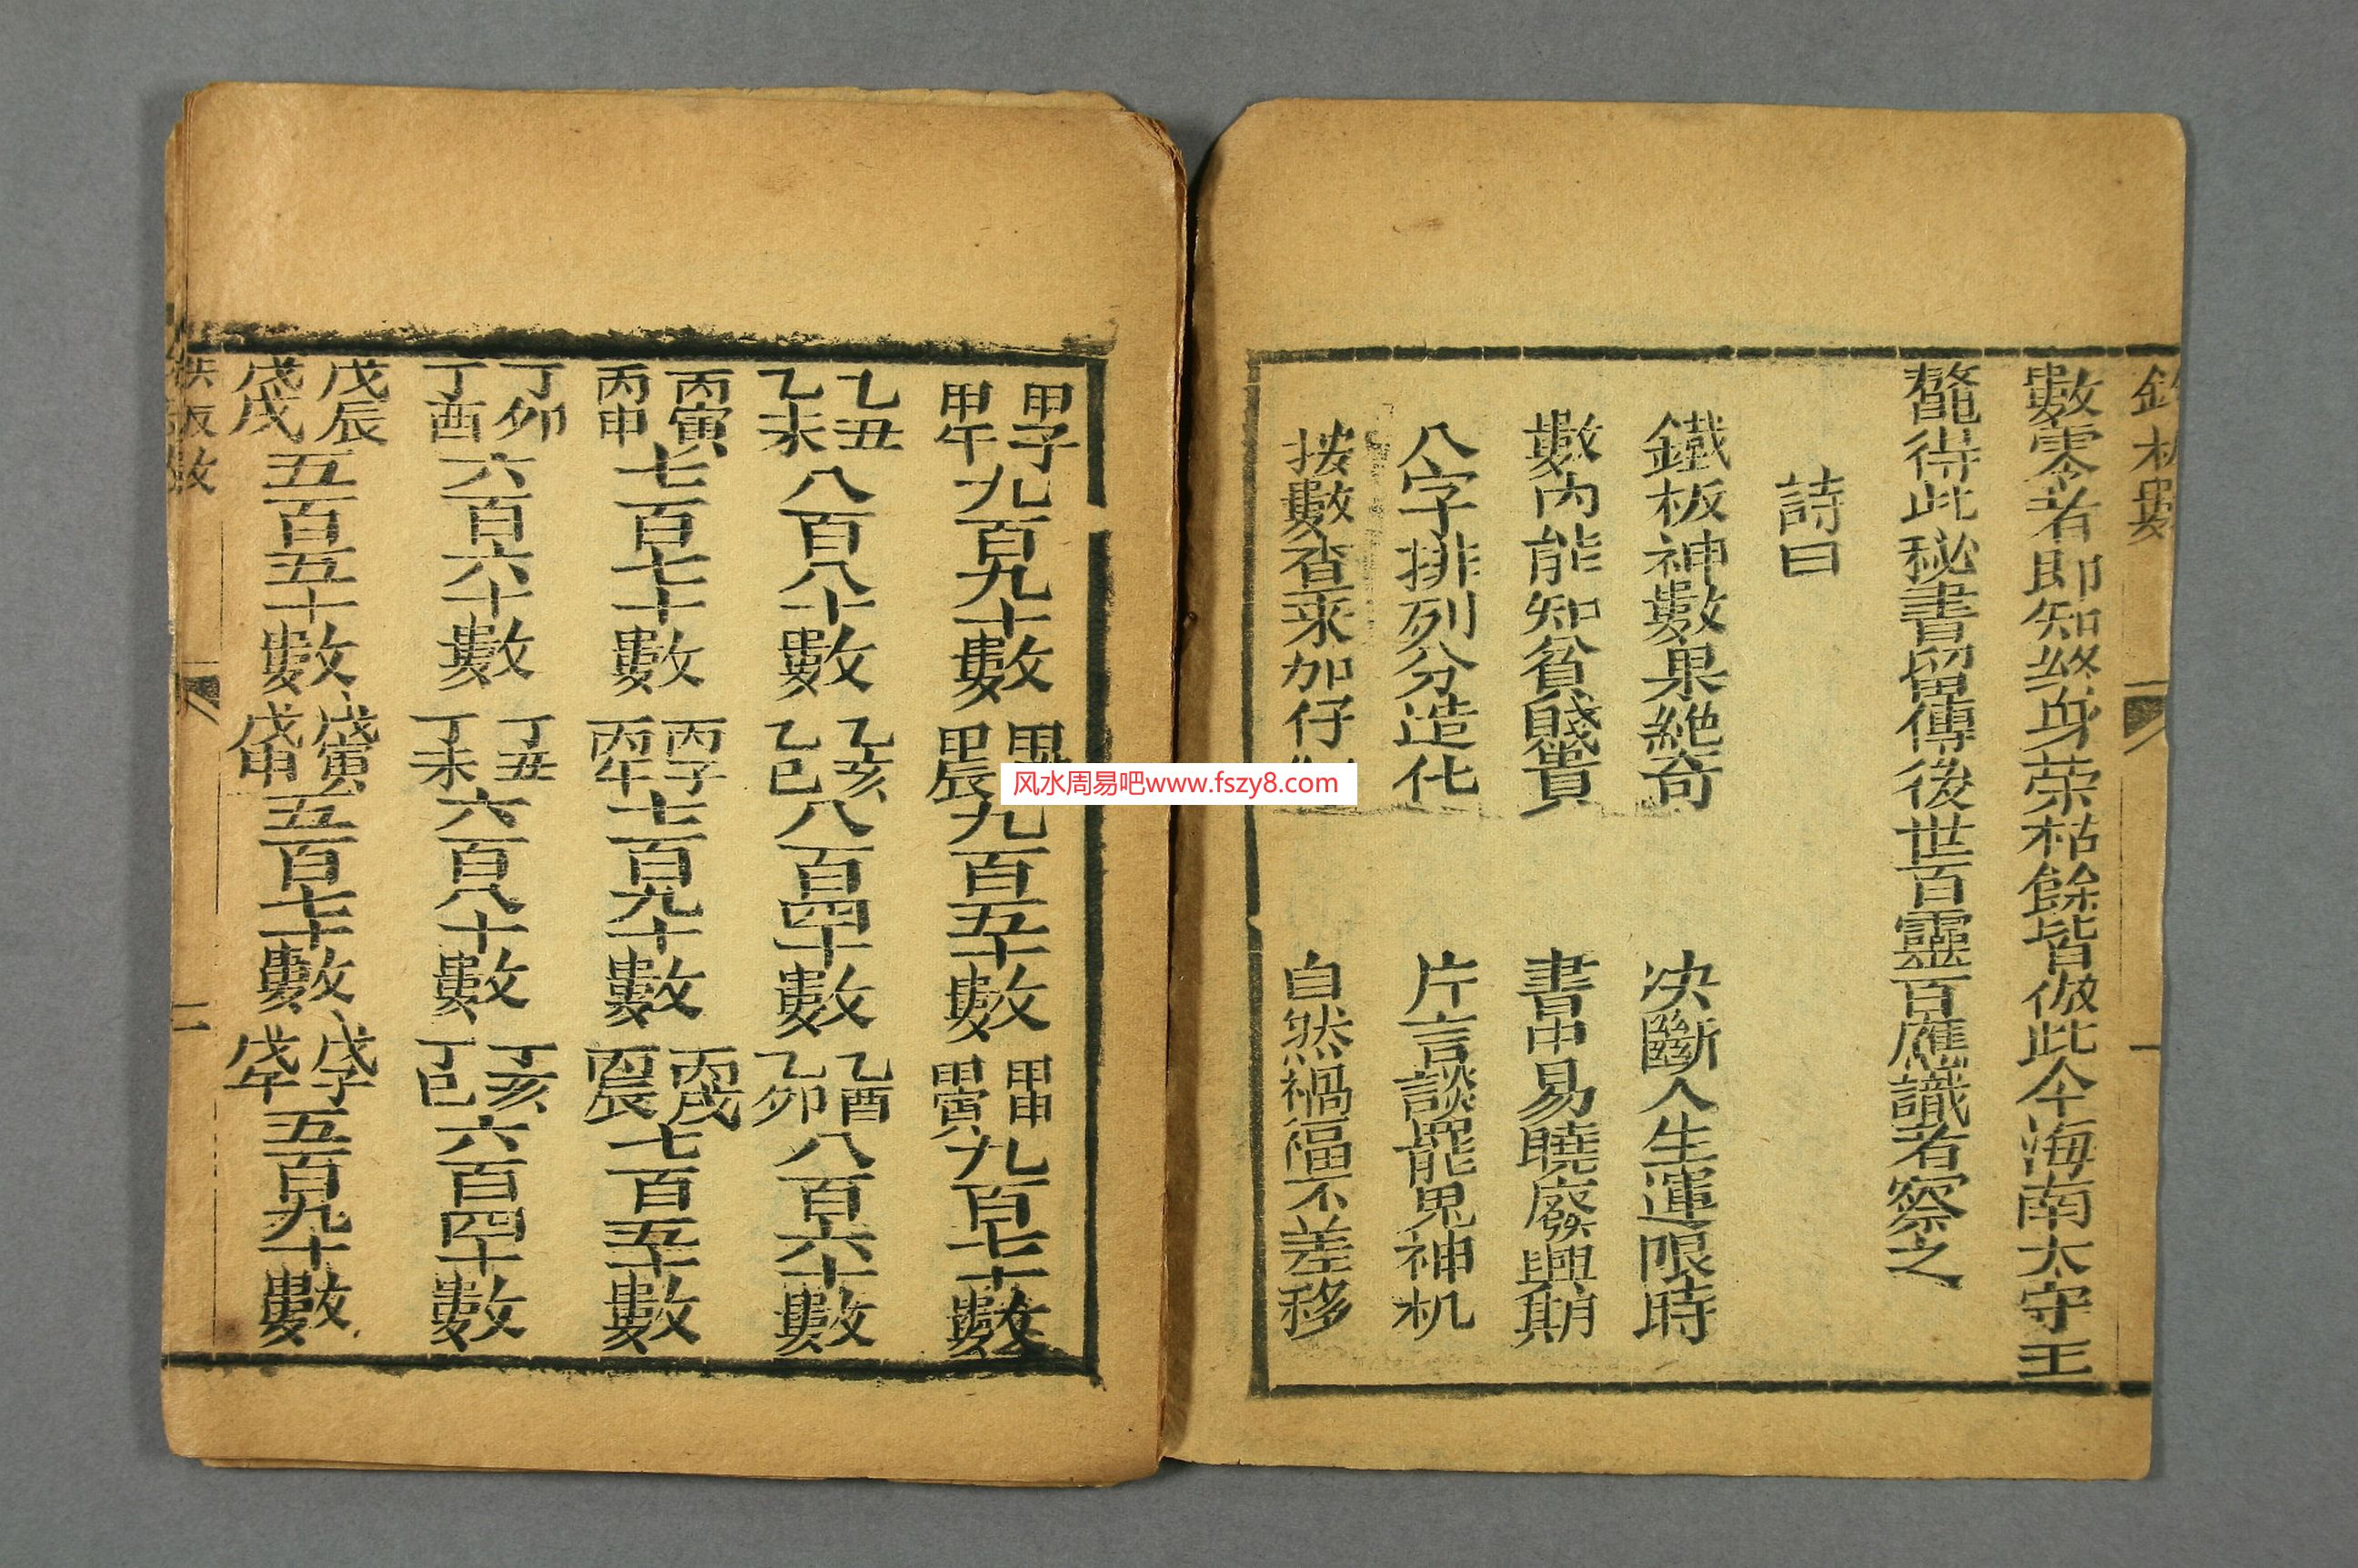 數零者即知終身荣枯餘皆倣此今海南太守王
鰲得此秘書留傳後世百靈百應識者察之
詩曰
鐵板神數果絶奇 决斷人生運限時
數內能知貧賤貴 書中易曉廢興期
八字排列分造化 片言談罷鬼神机
按數查來加仔 自然禍福不差移
甲子 甲午 九百九十數 甲辰 九百五十數 甲申 甲寅 九百七十數
乙丑 乙未 八百八十數 乙亥 乙巳 八百四十數 乙酉 乙卯 八百六十數
丙寅 丙申 七百七十數 丙子 丙午 七百九十數 丙戌 丙辰 七百五十數
丁卯 丁酉 六百六十數 丁丑 丁未 六百八十數 丁亥 丁巳 六百四十數
戊辰 戊戌 五百五十數 戊寅 戊申 五百七十數 戊子 戊午 五百九十數
风水周易吧www.fszy8.com